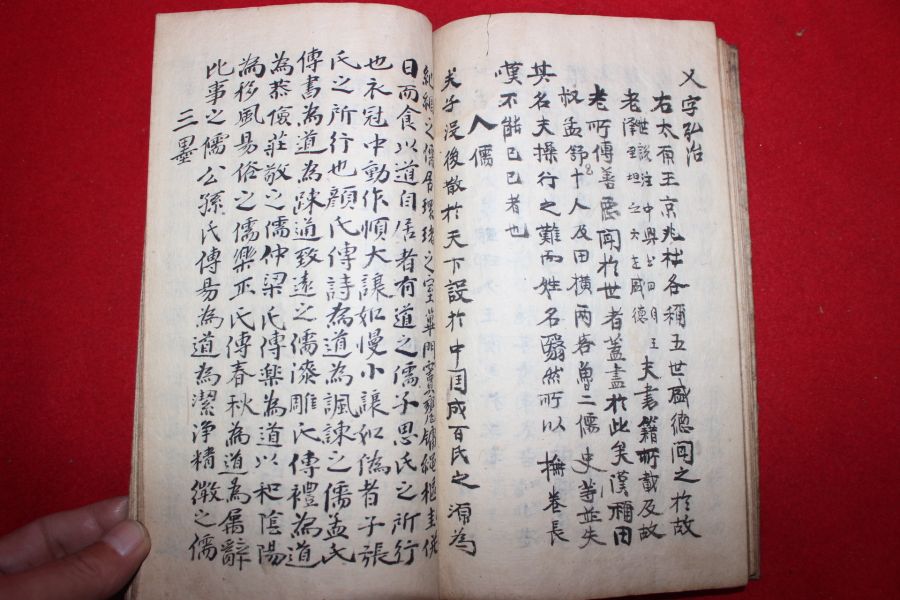 乂字弘治
右太原王京兆杜各稱五世盛德聞之於故
老世說注中興書曰王夫書籍所載及故
老所傳善惡聞於世者蓋盡於此矣漢稱田
叔孟舒等十人及田橫兩客魯二儒史並失
其名夫操行之難而姓名翳然所以撫卷長
嘆不能已已者也
八儒
夫子沒後散於天下設於中國成百氏之源為
紀綱之儒居環堵之室蓽門圭竇甕牖繩樞
日而食以道自居者有道之儒子思氏之所行
也衣冠中動作愼大讓如慢小讓如偽者子張
氏之所行也顏氏傳詩為道為諷諫之儒孟氏
傳書為道為疎通致遠之儒漆雕氏傳禮為道
為恭儉莊敬之儒仲梁氏傳樂為道以和陰陽
為移風易俗之儒樂正氏傳春秋為道為屬辭
比事之儒公孫氏傳易為道為潔淨精微之儒
三墨